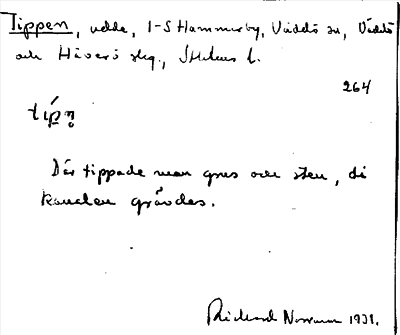 Tippen, udde, 1-S Hammarby, Väddö sn, Väddö
och Häverö skg., Sthlms l.
264
tip̀n
Där tippade man grus och sten, då
kanalen grävdes.
Richard Norrman 1931.